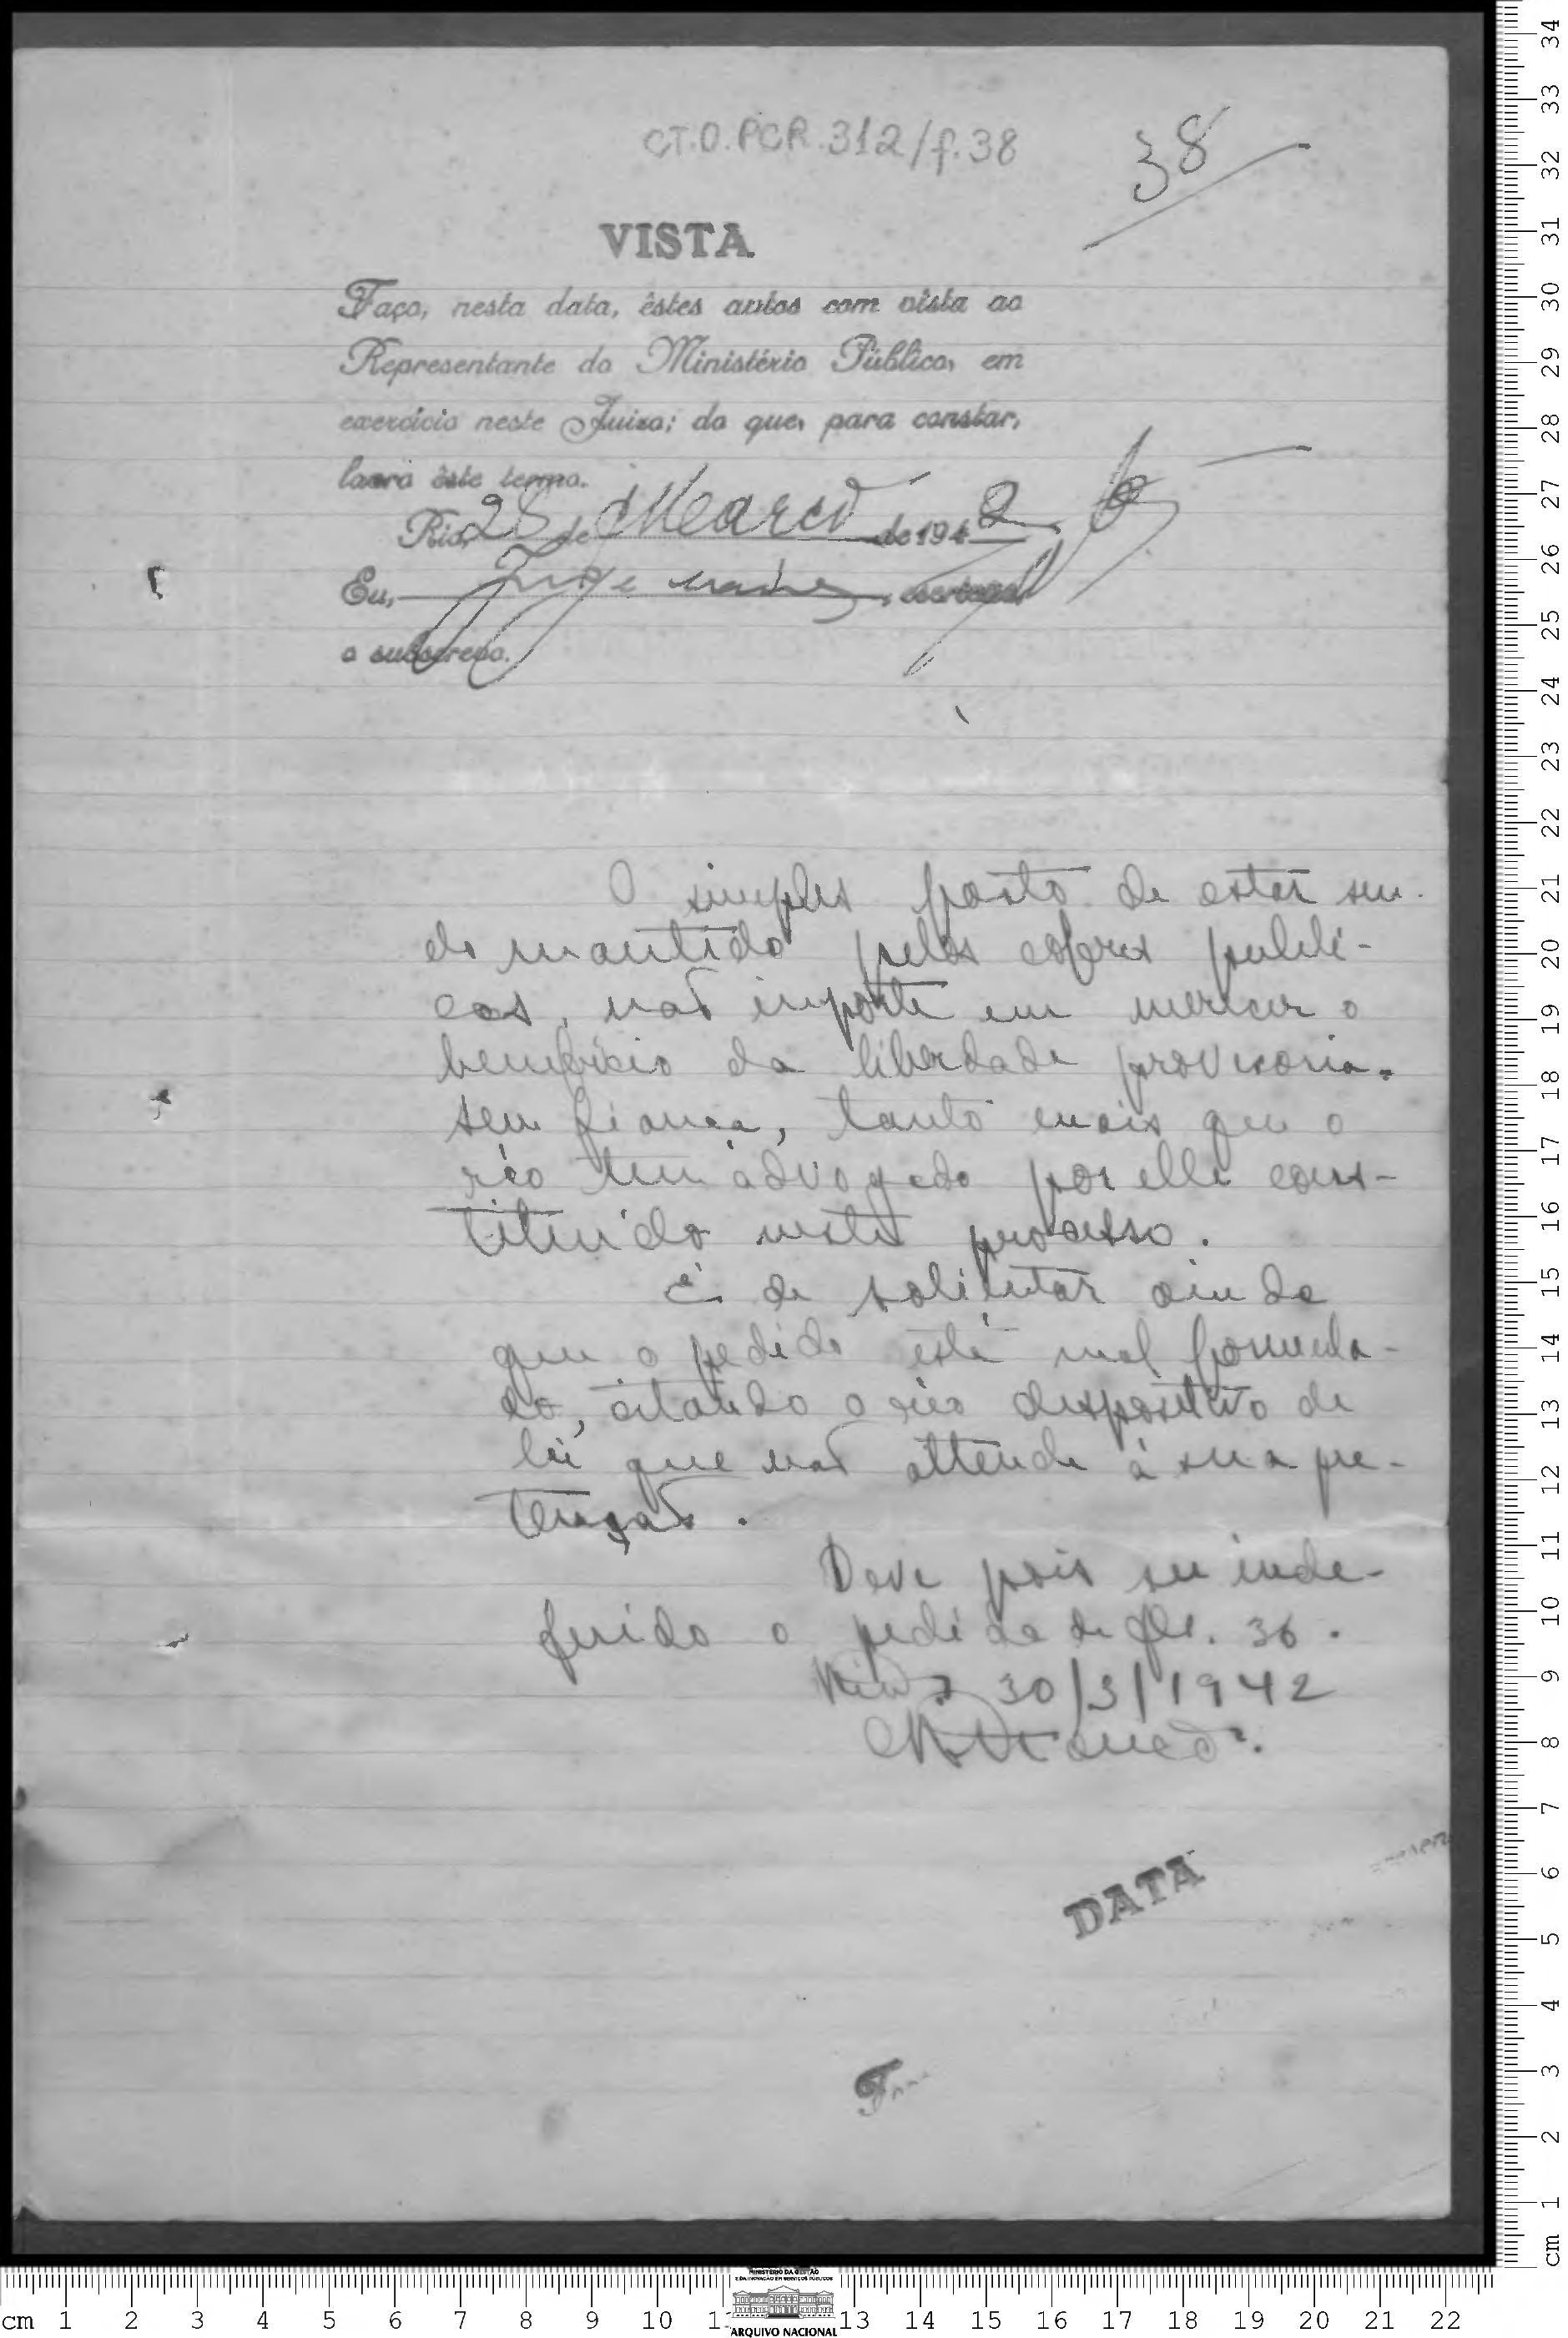 CT.O.PCR.312/f.38
38
VISTA
Faço, nesta data, êstes autos com vista ao
Representante do Ministério Público, em
exercício neste Juizo; do que, para constar,
lavro êste termo.
Rio, 28 de Março de 1942
Eu, escrivão
o subscrevo.
O simples facto de estar sen-
do mantido pelos cofres publi-
cos, não importe em merecer o
beneficio da liberdade provisoria
sem fiança, tanto mais que o
réo tem advogado por elle cons-
tituido neste processo.
É de salientar ainda
que o pedido está mal formula-
do, citando o réo dispositivo de
lei que não attende á sua pre-
tenção.
Deve pois ser inde-
ferido o pedido de fls. 36.
Rio, 30/3/1942
DATA
MINISTÉRIO DA GESTÃO
E DA INOVAÇÃO EM SERVIÇOS PÚBLICOS
ARQUIVO NACIONAL